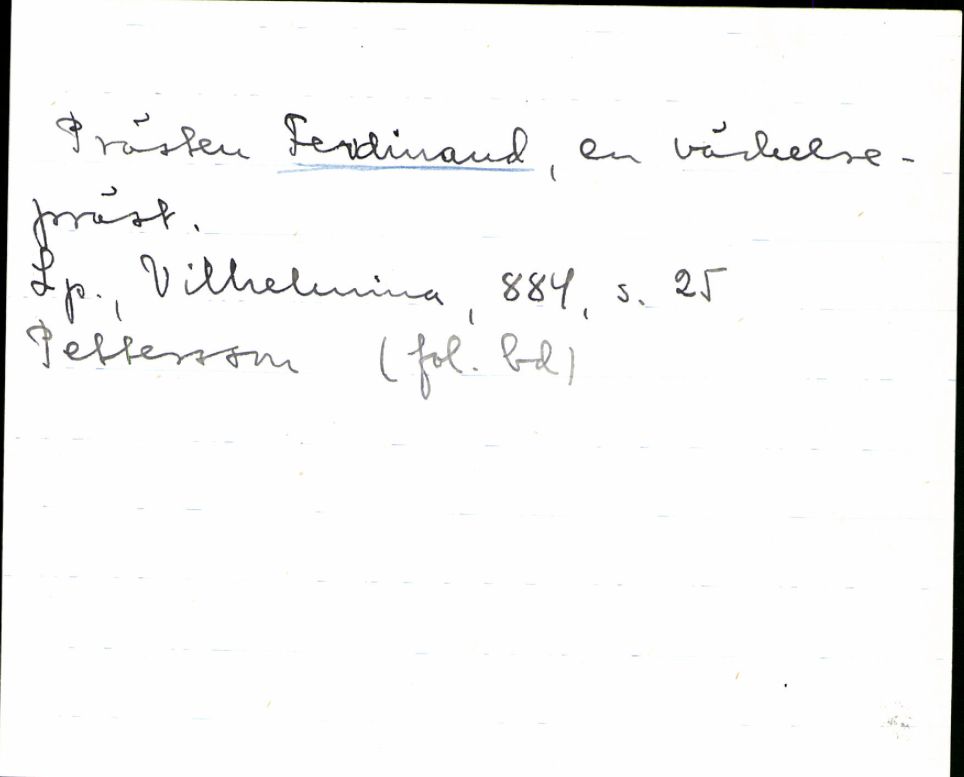 Prästen Ferdinand, en väckelse-
präst.
Lp., Vilhelmina, 884, s. 25
Pettersson (fol. bd)